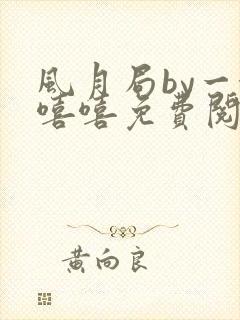 風月局by一
嘻嘻免費閱
黃向良